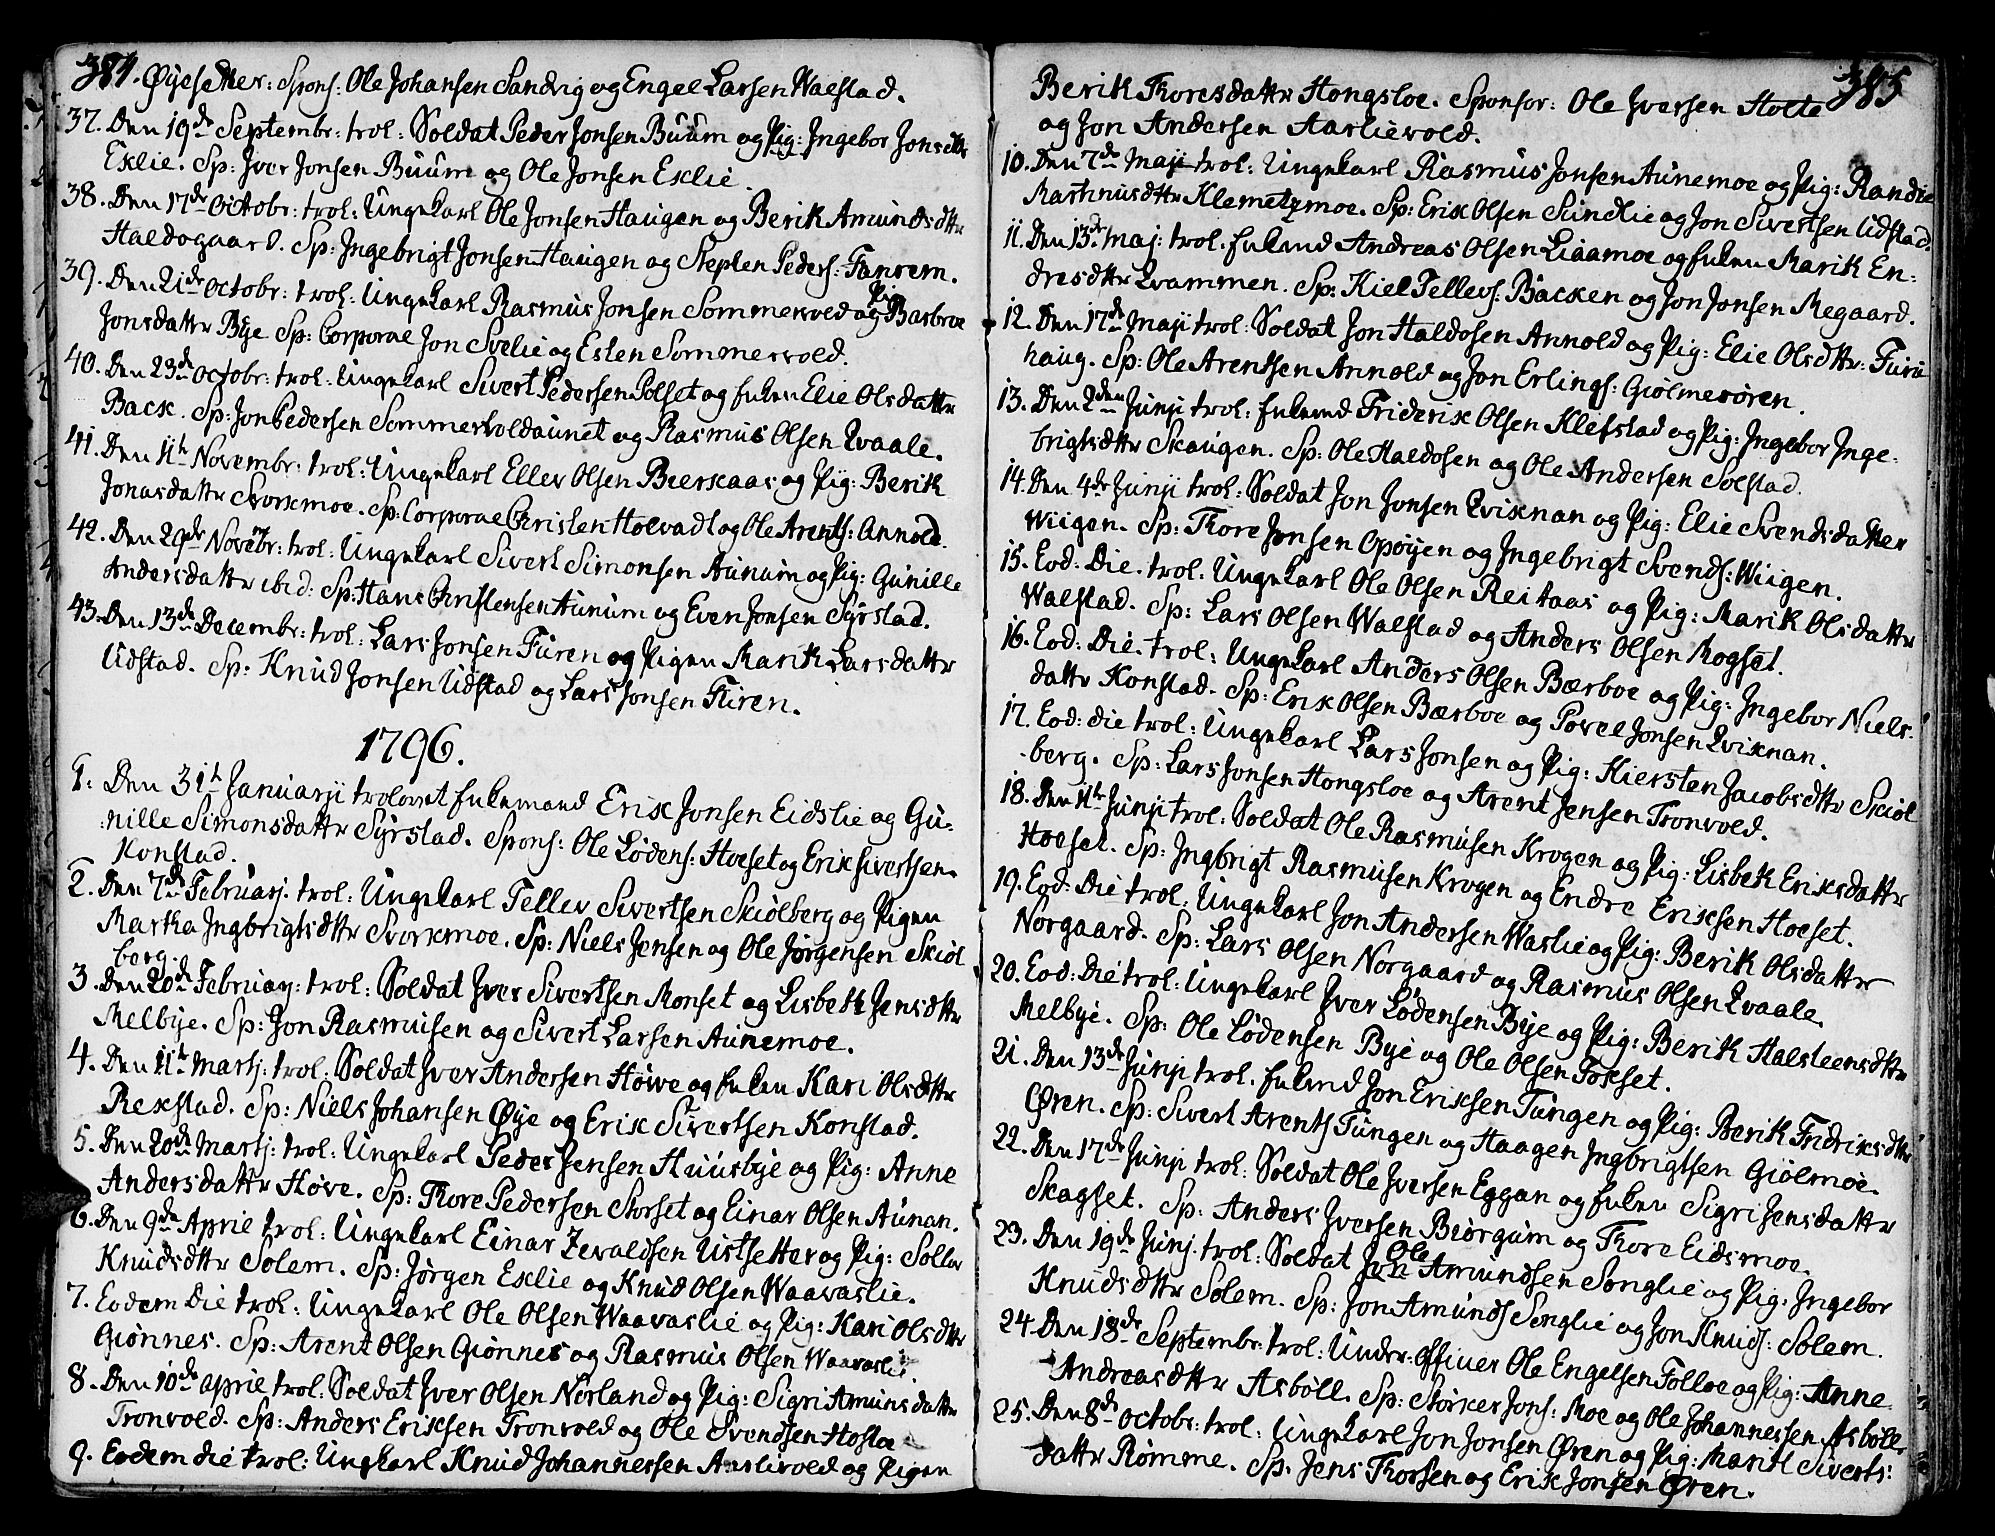 384.
Øyesetter: Spons: Ole Johansen Sandvig og Engel Larsen Walstad.
37. Den 19de Septembr: trol: Soldat Peder Jonsen Buum og Pig: Ingebor Jonsdttr
Exlie. Sp: Iver Jonsen Buum og Ole Jonsen Exlie.
38. Den 17de Octobr: trol: Ungekarl Ole Jonsen Haugen og Berik Amundsdttr
Haldogaard. Sp: Ingebrigt Jonsen Haugen og Stephen Peders: Fanrem.
39. Den 21de Octobr: trol: Ungekarl Rasmus Jonsen Sommervold og Pig: Barbroe
Jonsdattr Bye Sp: Corporal Jon Svelie og Esten Sommervold.
40. Den 23de Octobr: trol: Ungekarl Sivert Pedersen Solset og Enken Elie Olsdattr
Back. Sp: Jon Pedersen Sommervoldaunet og Rasmus Olsen Qvaale.
41. Den 11te Novembr: trol: Ungekarl Eller Olsen Bierkaas og Pig: Berik
Jonasdattr Svorkmoe. Sp: Corporal Christen Hoevadt og Ole Arents: Annold.
42. Den 29de Novebr: trol: Ungekarl Sivert Simonsen Aunum og Pig: Gunille
Andersdattr ibid: Sp: Hans Christensen Aunum og Even Jonsen Syrstad.
43. Den 13de Decembr: trol: Lars Jonsen Furen og Pigen Marik Larsdattr
Udstad. Sp: Knud Jonsen Udstad og Lars Jonsen Furen.
1796.
1. Den 31te Januarji trolovet Enkemand Erik Jonsen Eidslie og Gu-
nille Simonsdattr Syrstad. Spons: Ole Lodens: Hoeset og Erik Sivertsen
Konstad.
2. Den 7de Februarj. trol: Ungekarl Teller Sivertsen Skiølberg og Pigen
Martha Ingbrigtsdttr Svorkmoe. Sp: Niels Jensen og Ole Jørgensen Skiøl
berg.
3. Den 20de Februarj: trol: Soldat Iver Sivertsen Monset og Lisbeth Jensdttr
Melbye. Sp: Jon Rasmusen og Sivert Larsen Aunemoe.
4. Den 11te Martj: trol: Soldat Iver Andersen Høwe og Enken Kari Olsdttr
Rekstad. Sp: Niels Johansen Øye og Erik Sivertsen Konstad.
5. Den 20de Martj: trol: Ungekarl Peder Jensen Huusbye og Pig: Anne
Andersdattr Høve. Sp: Thore Pedersen Storset og Einar Olsen Aunan.
6. Den 9de April trol: Ungekarl Einar Zevaldsen Ustsetter og Pig: Sollov
Knudsdttr Solem. Sp: Jørgen Exlie og Knud Olsen Waavaslie.
7. Eodem Die trol: Ungekarl Ole Olsen Waavaslie og Pig: Kari Olsdttr
Giønnes. Sp: Arent Olsen Giønnes og Rasmus Olsen Waavasli.
8. Den 10de April trol: Soldat Iver Olsen Norland og Pig: Sigri Amunsdattr
Tronvold. Sp: Anders Eriksen Tronvold og Ole Svendsen Hosloe
9. Eodem die trol: Ungkarl Knud Johannessen Aarlivold og Pigen
385
Berik Thoresdattr Hongsloe. Sponsor: Ole Iversen Holte
og Jon Andersen Aarlievold.
10. Den 7de Maji trol: Ungekarl Rasmus Jonsen Aunemoe og Pig: Randie
Martinusdttr Klemetzmoe. Sp: Erik Olsen Sundlie og Jon Sivertsen Udstad.
11. Den 13de Maj: trol. Enkemd Andreas Olsen Liaamoe og Enken Marik En:
dresdttr Qvammen. Sp: Kiel Tellevs: Backen og Jon Jonsen Megaard.
12. Den 17de Maji trol: Soldat Jon Haldosen Annold og Pig: Elie Olsdttr: Furu
haug. Sp: Ole Arentsen Annold og Jon Erlings: Giølmesøren.
13. Den 2den Junji trol: Enkemd Friderik Olsen Klefstad og Pig: Ingebor Inge-
brigtsdttr Skaugen. Sp: Ole Haldosen og Ole Andersen Solstad.
14. Den 4de Junji trol: Soldat Jon Jonsen Qviknan og Pig: Elie Svendsdatter
Wiigen. Sp: Thore Jonsen Opøyen og Ingebrigt Svends: Wiigen.
15. Eod: Die. trol: Ungekarl Ole Olsen Reitaas og Pig: Marik Olsdattr
Walstad. Sp: Lars Olsen Walstad og Anders Olsen Mogset.
16. Eod: Die. trol: Ungekarl Anders Olsen Bærboe og Pig: Ingebor Niels-
dattr Konstad. Sp: Erik Olsen Bærboe og Povel Jonsen Qviknan.
17. Eod: die trol: Ungekarl Lars Jonsen og Pig: Kiersten Jacobsdttr Skiøl
berg. Sp: Lars Jonsen Hongsloe og Arent Jensen Tronvold.
18. Den 11te Junji trol: Soldat Ole Rasmusen Krogen og Pig: Lisbek Eriksdattr
Hoeset. Sp: Ingbrigt Rasmusen Krogen og Endre Eriksen Hoeset.
19. Eod: Die trol: Ungekarl Jon Andersen Waslie og Pig: Berik Olsdattr
Norgaard. Sp: Lars Olsen Norgaard og Rasmus Olsen Qvaale.
20. Eod: Die trol: Ungekarl Iver Lødensen Bye og Pig: Berik Halsteensdttr
Melbye. Sp: Ole Lødensen Bye og Ole Olsen Foeset.
21. Den 13de Junji trol. Enkemd Jon Eriksen Tungen og Pig: Berik Fridriksdttr
Øren. Sp: Sivert Arents Tungen og Haagen Ingbrigtsen Giølmoe.
22. Den 17de Junji trol: Soldat Ole Iversen Eggan og Enken Sigri Jensdattr
Skagset. Sp: Anders Iversen Biørgum og Thore Eidsmoe.
23. Den 19de Junj. trol: Soldat Jon Ole Amundsen Songlie og Pig: Ingebor
Knudsdttr Solem. Sp: Jon Amunds Songlie og Jon Knuds: Solem.
24. Den 18de Septembr: trol: Under: Officier Ole Engelsen Folloe og Pig: Anne
Andreasdttr Asbøll. Sp: Størker Jons: Moe og Ole Johannessen Asbøll
25. Den 8de Octobr: trol: Ungekarl Jon Jonsen Øren og Pig: Marit Siverts:
dattr Rømme. Sp: Jens Thorsen og Erik Jonsen Øren.